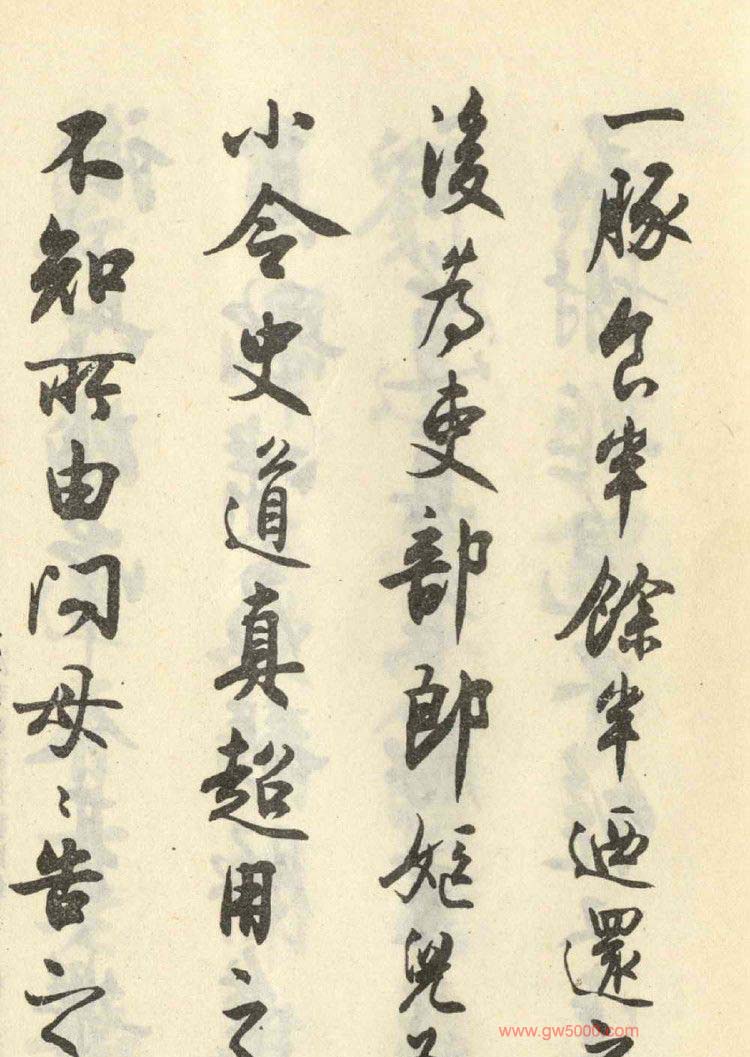 一豚食半餘半迺還
後為吏部郎嫗兒
小令史道真超用之
不知所由問母〻告之
www.gw5000.com